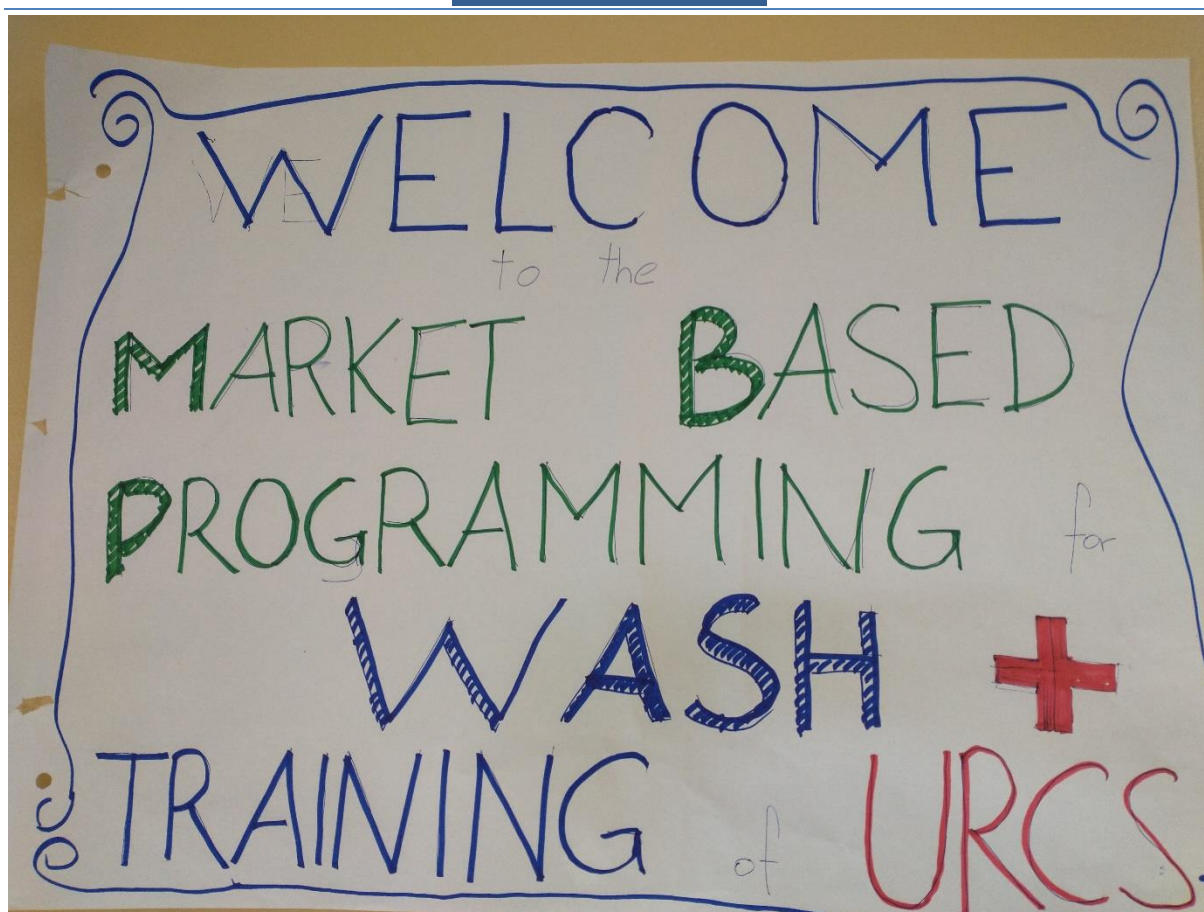 WELCOME
to the
MARKET BASED
PROGRAMMING for
WASH
TRAINING of URCS.